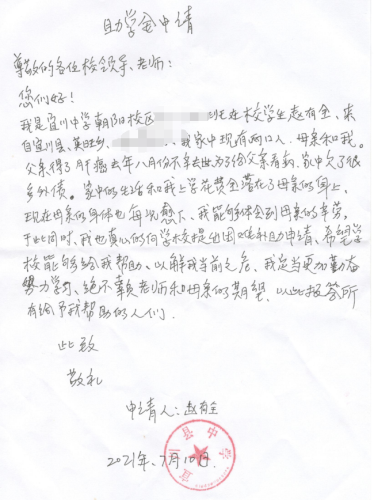 助学金申请
尊敬的各位校领导、老师:
您们好!
我是宜川中学朝阳校区 班在校学生赵有全,来
自宜川县、英旺乡, 、我家中现有两口人.母亲和我。
父亲得了肝癌去年八月份不幸去世,为了给父亲看病,家中欠了很
多外债。家中的生活和我上学花费全落在了母亲的身上,
现在母亲的身体也每况愈下、我能够体会到母亲的辛劳,
于此同时、我也真心的向学校提出困难补助申请、希望学
校能够给我帮助、以解我当前之危、我定当更加勤奋
努力学习、绝不辜负老师和母亲的期望.以此报答所
有给予我帮助的人们.
此致
敬礼
申请人:赵有全
宜川县中学
2021年、7月10日.